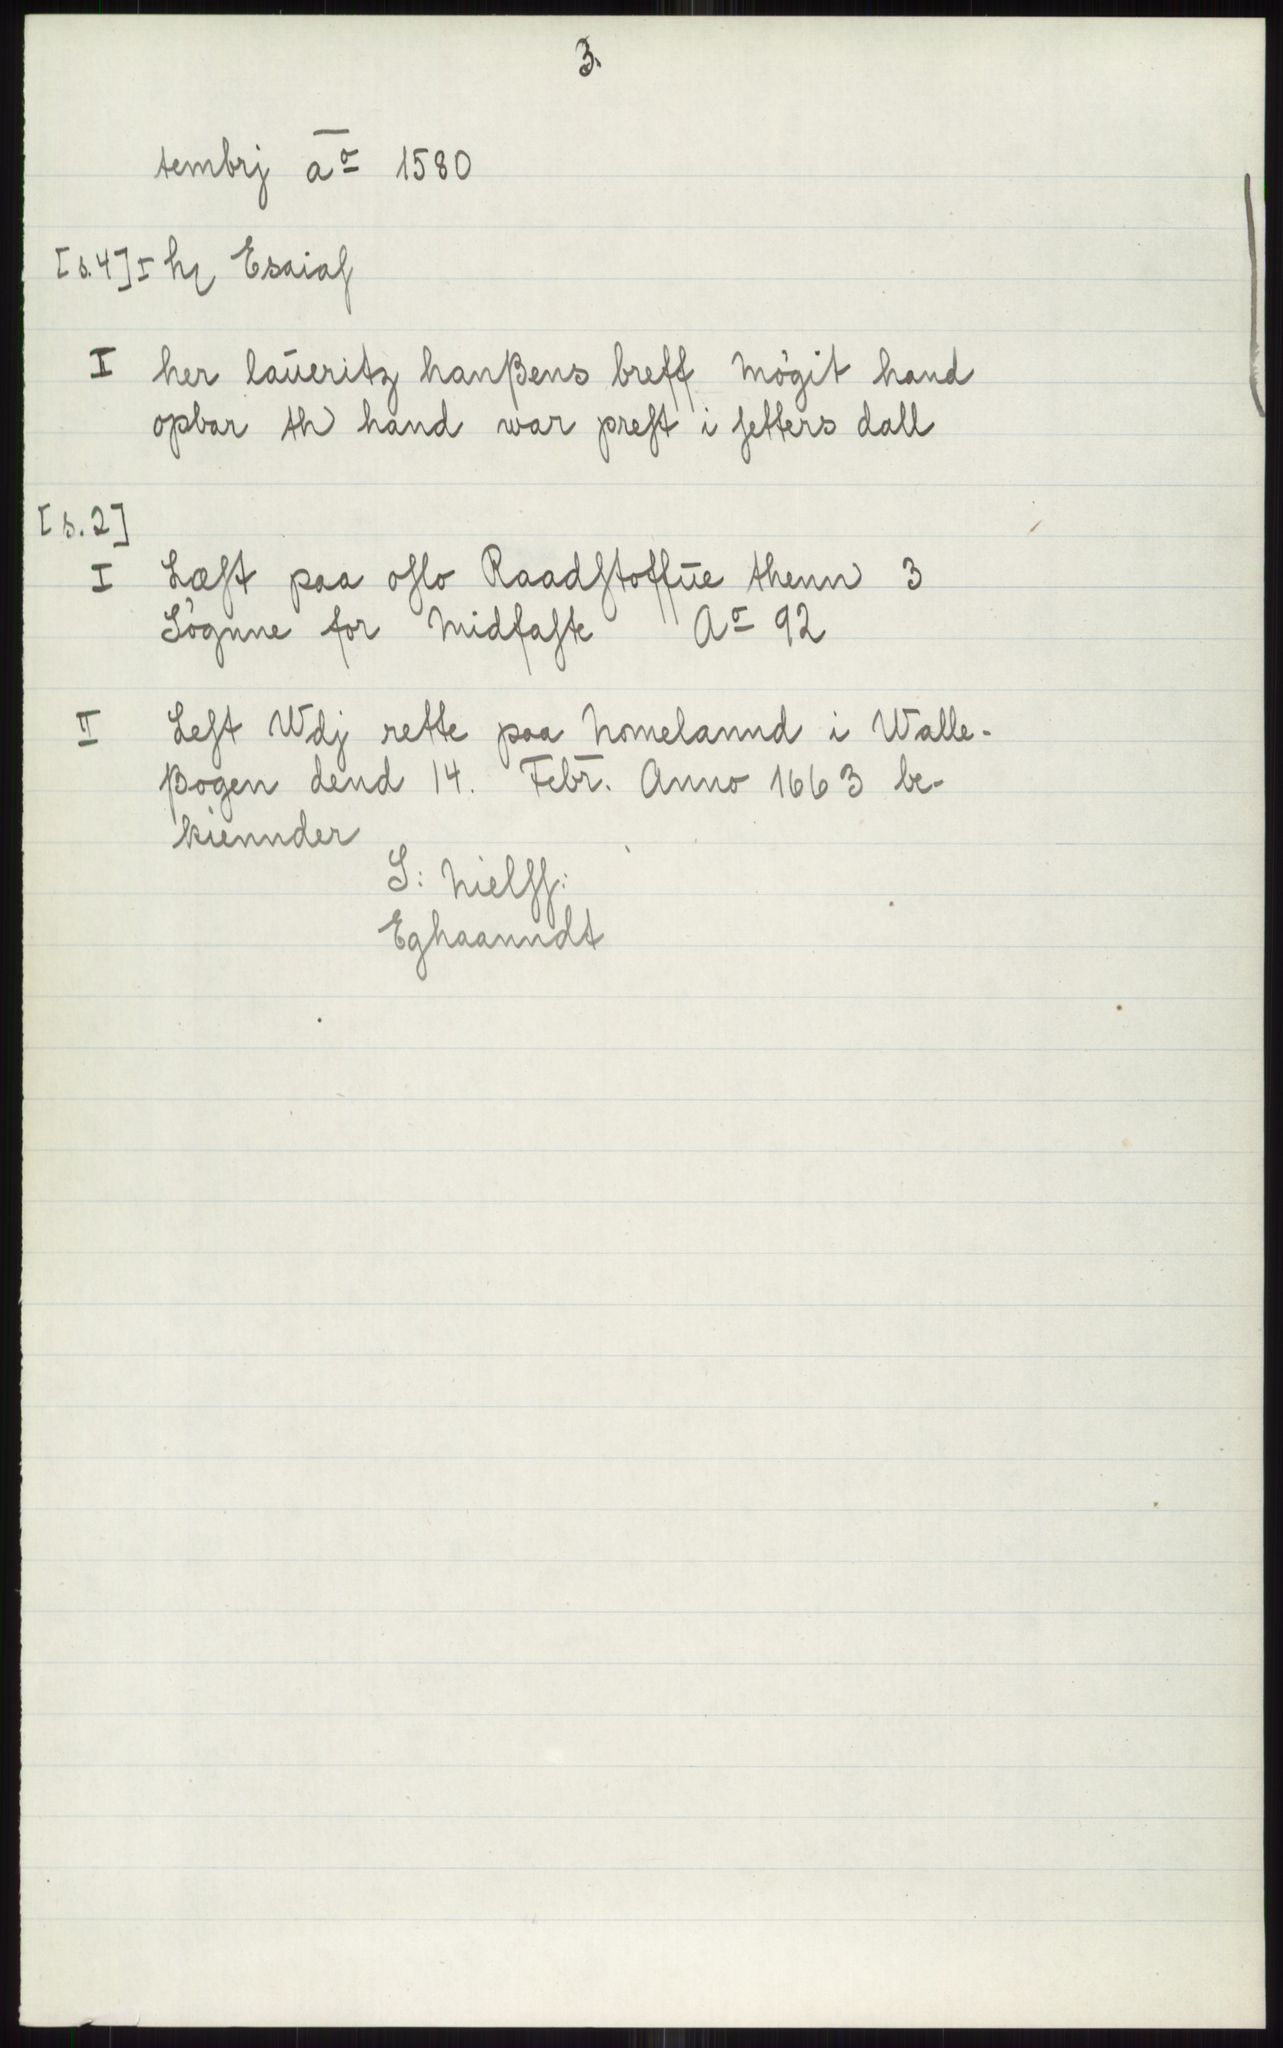 3.
tembrj a̅o 1580
[s.4] I hr Esaias
I her laŭeritz hanßens breff Mögit hand
opbar th hand war prest i setters dall
[s.2]
I Læst paa oslo Raadstoffŭe thenn 3
Sögnne for Midfaste Ao 92
II Lest Wdj rette paa homelannd i Walle-
ßogen dend 14. Febr. Anno 1663 be-
kiennder
S: Nielss:
Eghaanndt